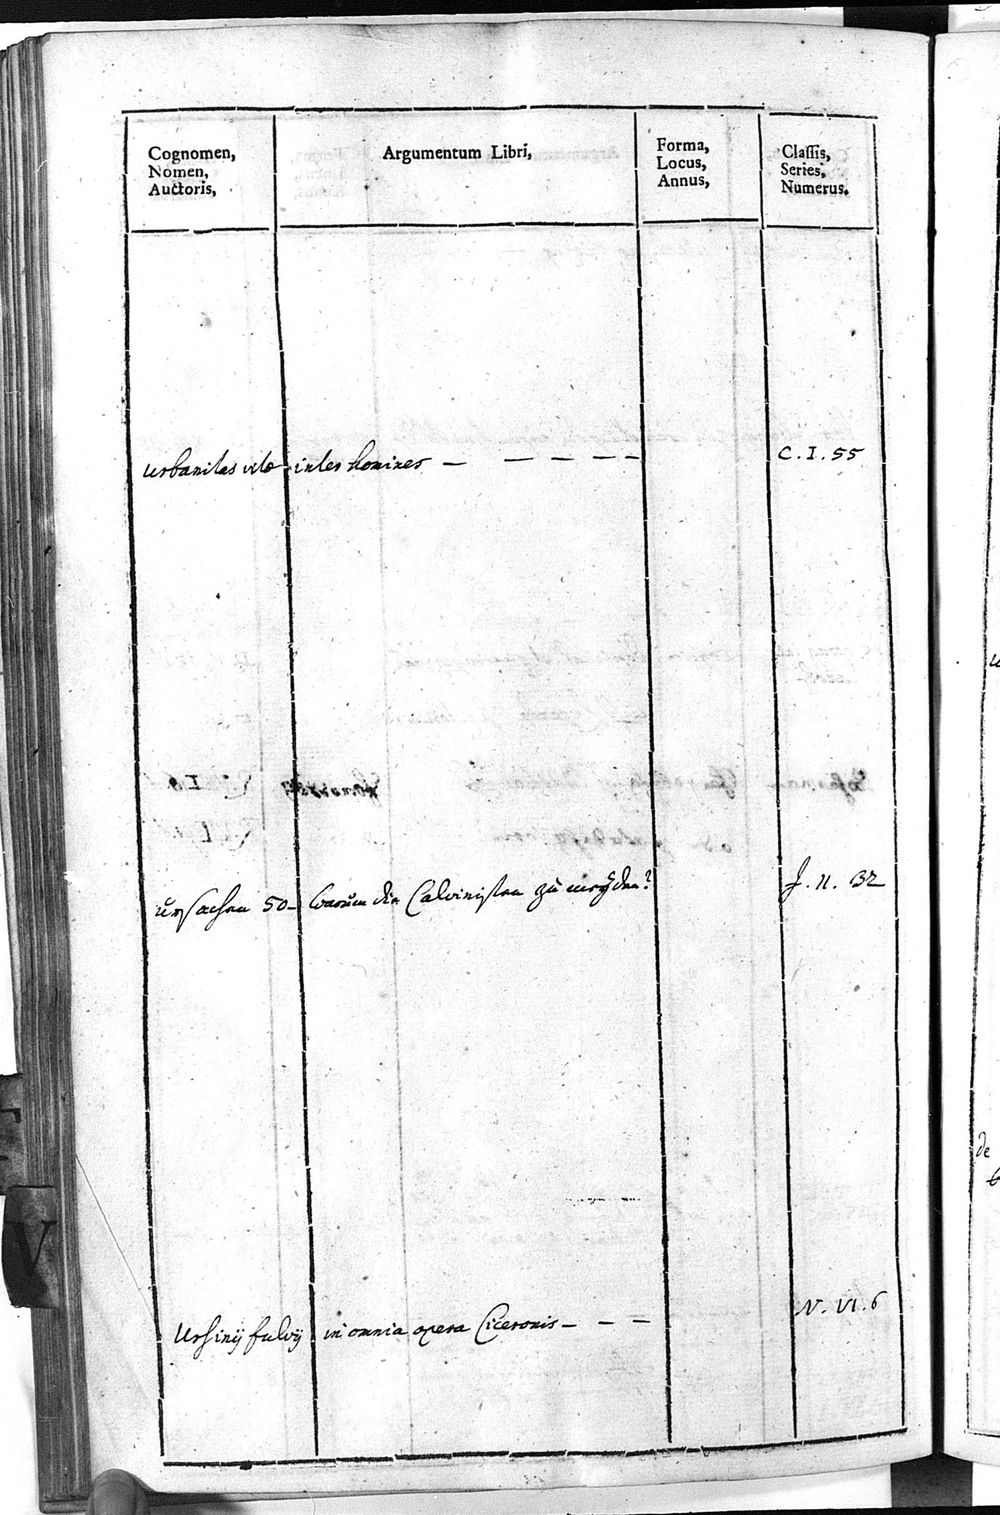 Cognomen,
Nomen,
Auctoris,
Argumentum Libri,
Forma,
Locus,
Annus,
Classis,
Series,
Numerus.
Urbanitas vitæ inter homines — — — — — C. I. 55
Ursachen 50 — warum die Calvinisten zu meÿden? J. II. 32
Ursinij fulvij in omnia opera Ciceronis — — — N. VI. 6
V
de